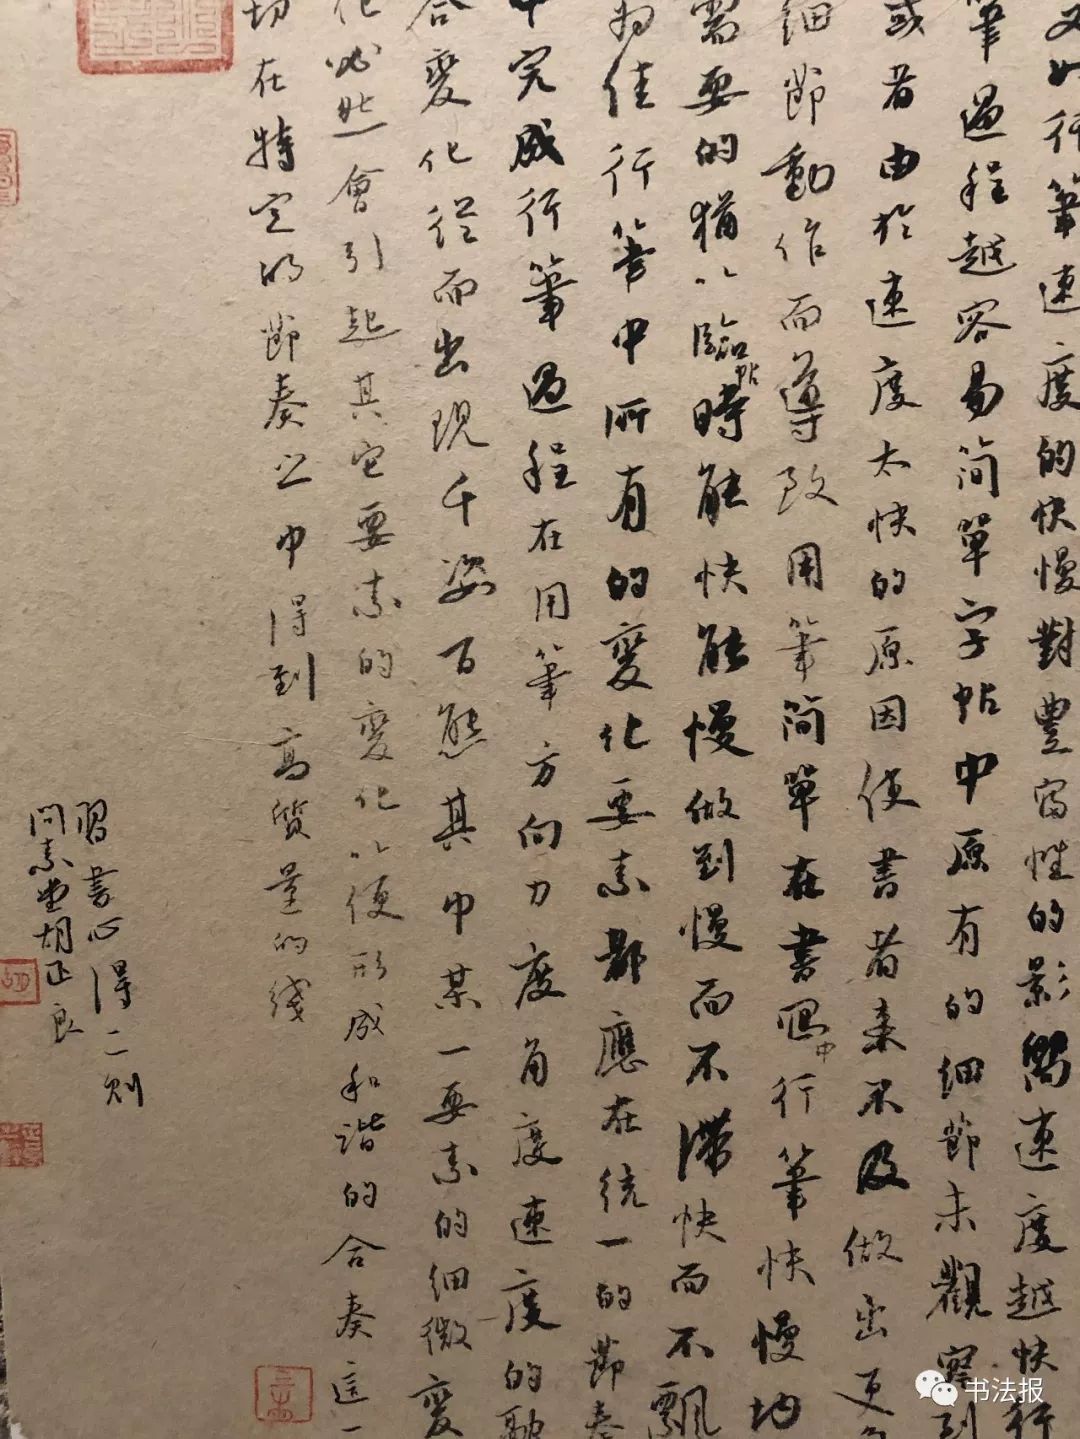 又如行筆速度的快慢對豐富性的影響速度越快行
筆過程越容易简單字帖中原有的细節未觀察到
或者由於速度太快的原因使書者来不及做出更
细節動作而導致用筆简單在書寫中行筆快慢均
需要的猶以臨帖時能快能慢做到慢而不滞快而不飄
为佳行筆中所有的變化要素都應在統一的節奏
中完成行筆過程在用筆方向力度角度速度的
合變化從而出現千姿百態其中某一要素的细微變
化必然會引起其它要素的變化以便形成和諧的合奏這一
切在特定的節奏之中得到高質量的綫
習書心得二则
問素堂胡正良
书法报